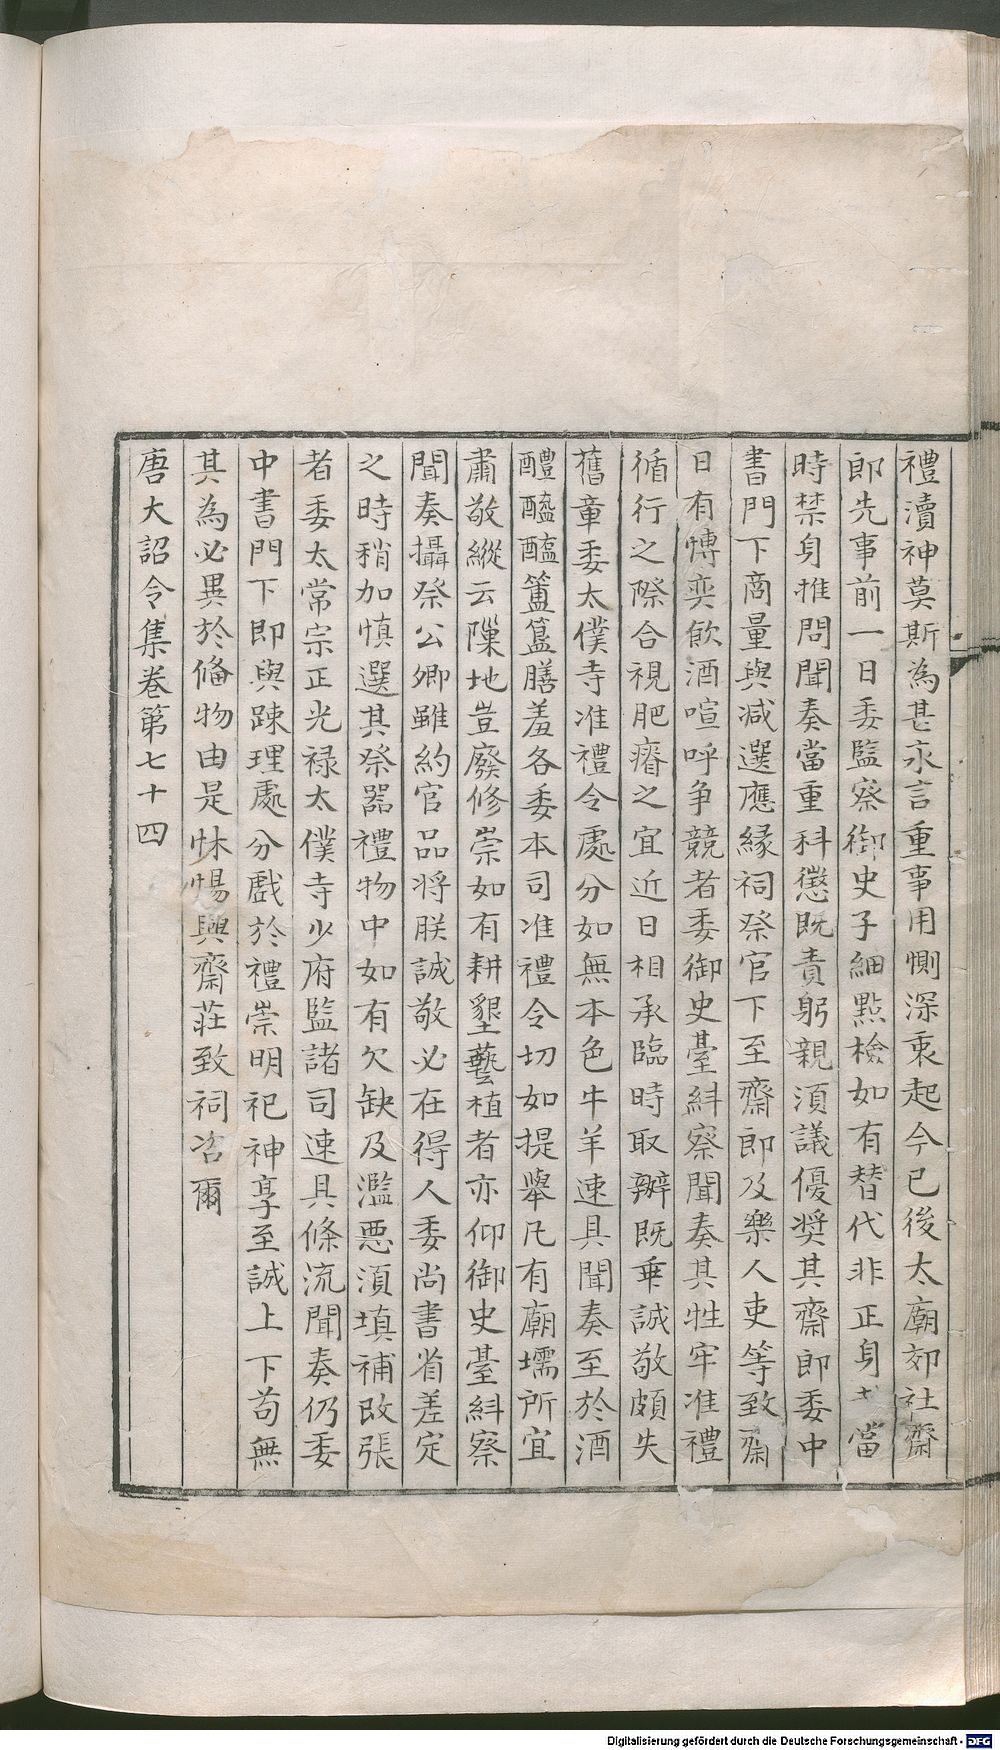 禮瀆神莫斯為甚永言重事用惻深衷起今已後太廟郊社齋
郎先事前一日委監察御史子細㸃檢如有替代非正身当當
時禁身推問聞奏當重科懲既責躬親湏議優奨其齋郎委中
書門下商量與减選應縁祠祭官下至齋郎及樂人吏等致齋
日有愽奕飮酒喧呼争競者委御史臺糾察聞奏其牲牢准禮
循行之際合視肥瘠之宜近日相承臨時取辦既乖誠敬頗失
舊章委太僕寺准禮令處分如無本色牛羊速具聞奏至於酒
醴醯醢簠簋膳羞各委本司准禮令切如提舉凡有廟壖所宜
肅敬縱云隟地豈廢修崇如有耕墾藝植者亦仰御史臺糾察
聞奏攝祭公卿雖約官品将朕誠敬必在得人委尚書省差定
之時稍加慎選其祭噐禮物中如有欠缺及濫惡湏填補改張
者委太常宗正光禄太僕寺少府監諸司速具條流聞奏仍委
中書門下即與踈理處分戲於禮崇明祀神享至誠上下苟無
其為必異於俻物由是怵惕興齋莊致祠咨爾
唐大詔令集卷第七十四
Digitalisierung gefördert durch die Deutsche Forschungsgemeinschaft - DFG